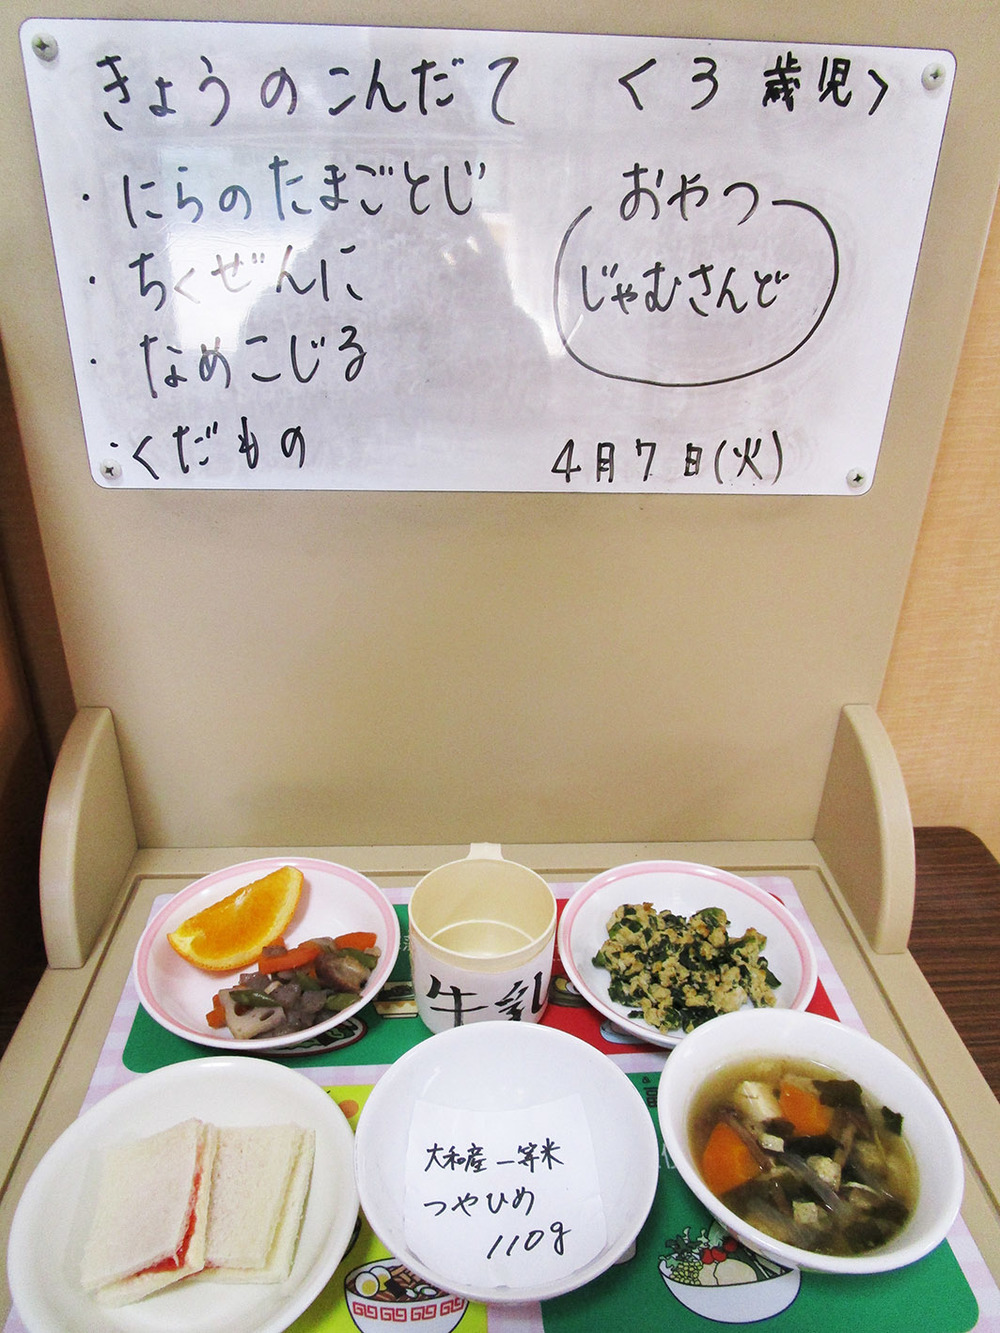 きょうのこんだて <3歳児>
・にらのたまごとじ
・ちくぜんに
・なめこじる
・くだもの
おやつ
じゃむさんど
4月7日(火)
牛乳
大和産一等米
つやひめ
110g